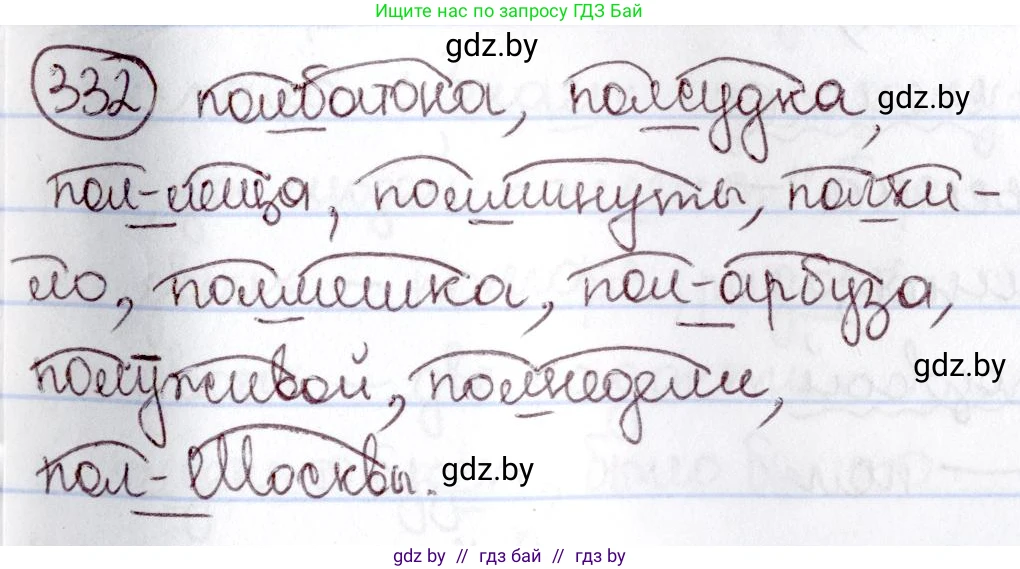 Ищите нас по запросу ГДЗ Бай
gdz.by
332 полбатона, полсудка,
gdz.by
пол-лица, полминуты, полки-
ло, полмешка, пол-арбуза,
полуживой, полнедели,
gdz.by
пол-Москвы.
gdz.by
gdz by // гдз бай // гдз by